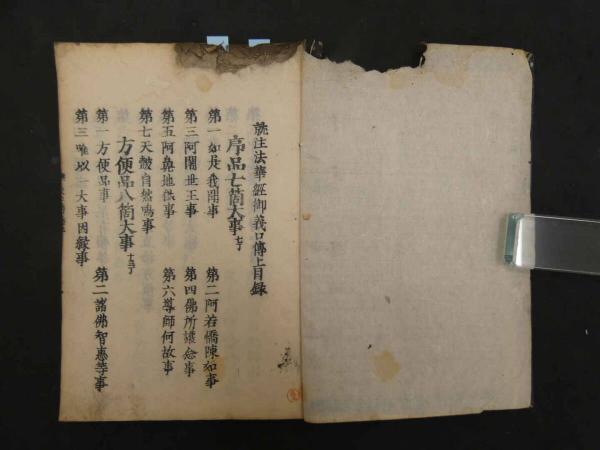 就注法華経御義口傳上目録
序品七箇大事
第一如是我聞事 第二阿若憍陳如事
第三阿闍世王事 第四佛所護念事
第五阿鼻地獄事 第六導師何故事
第七天皷自然鳴事
方便品八箇大事
第一方便品事 第二諸佛智惠等事
第三唯以一大事因縁事